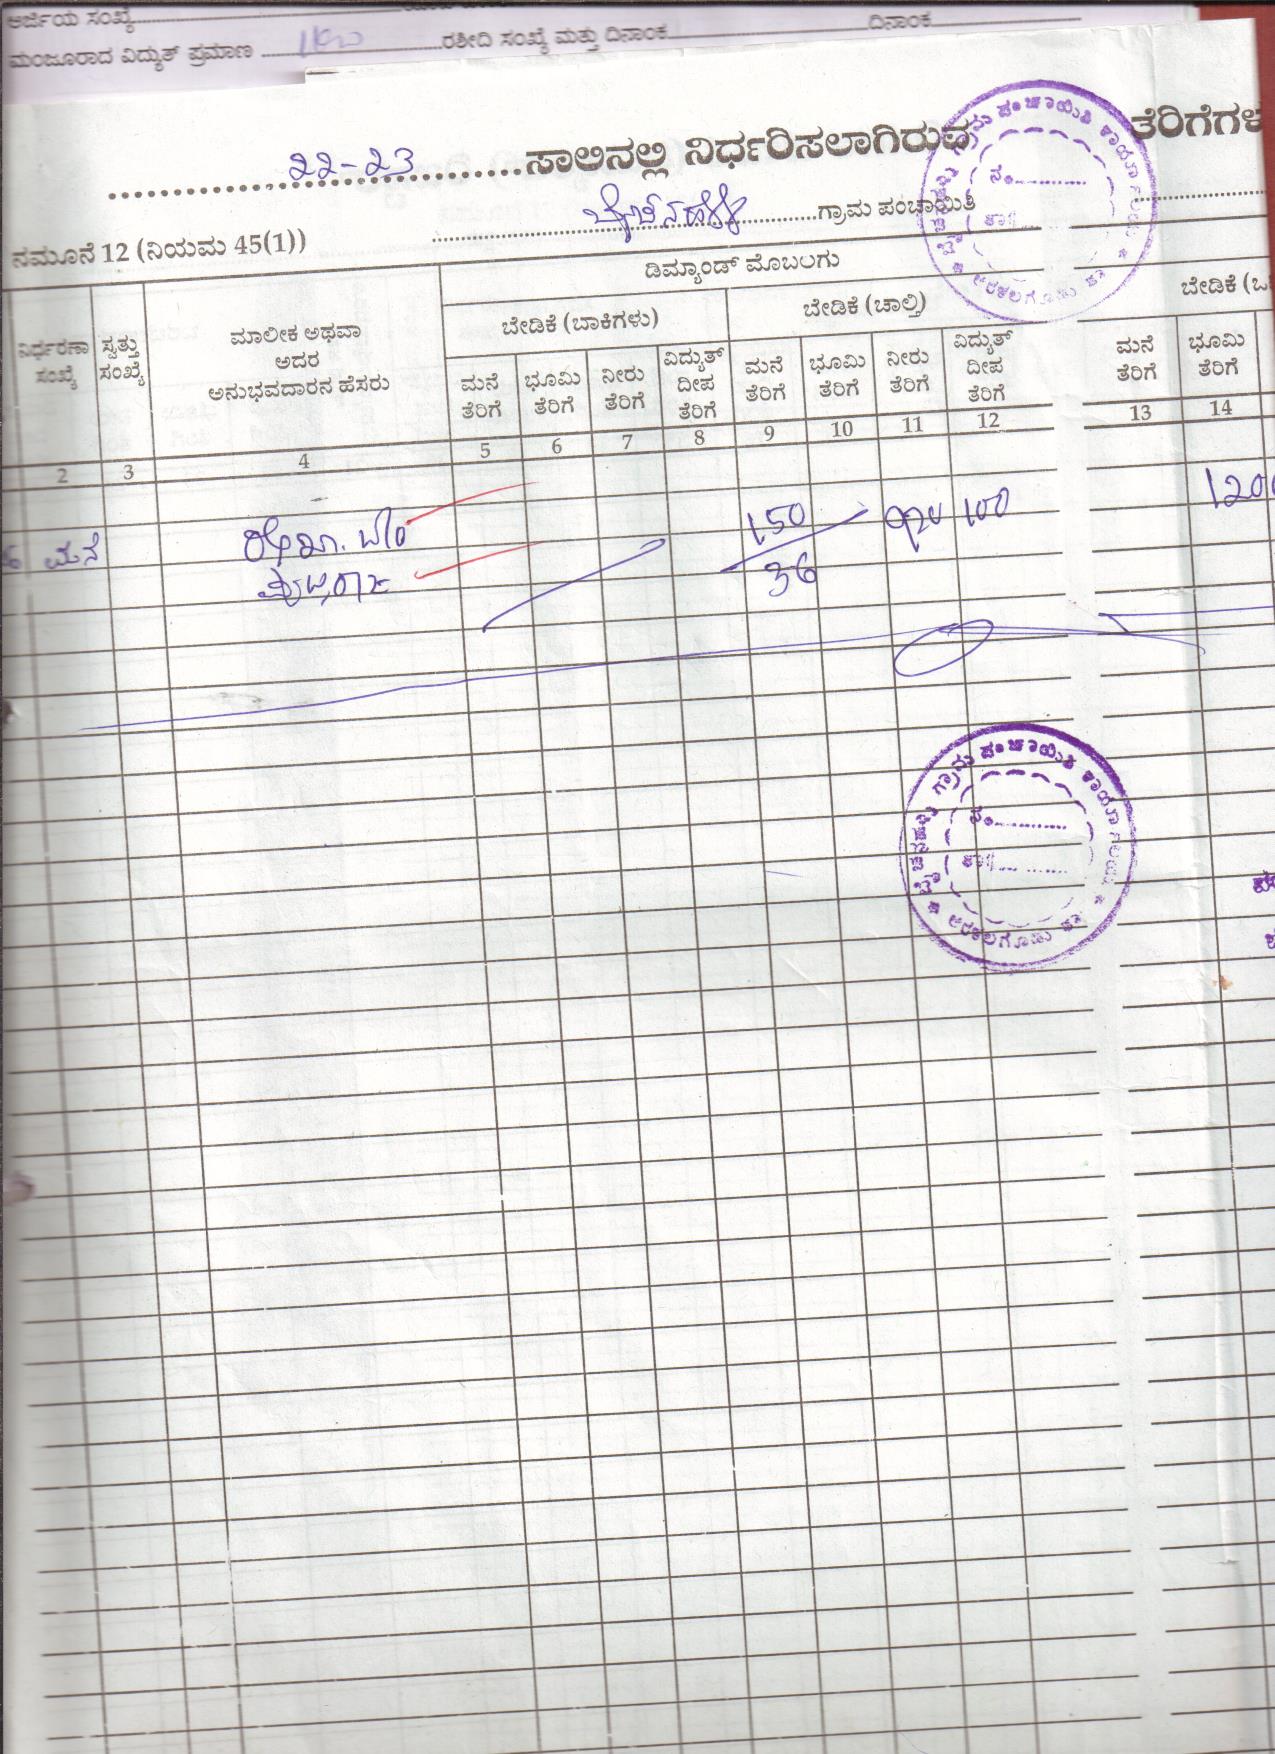 ಅರ್ಜಿಯ ಸಂಖ್ಯೆ
ಮಂಜೂರಾದ ವಿದ್ಯುತ್ ಪ್ರಮಾಣ ರಶೀದಿ ಸಂಖ್ಯೆ ಮತ್ತು ದಿನಾಂಕ ದಿನಾಂಕ
22-23 ಸಾಲಿನಲ್ಲಿ ನಿರ್ಧರಿಸಲಾಗಿರುವ ತೆರಿಗೆಗಳ
ಗ್ರಾಮ ಪಂಚಾಯಿತಿ
ನಮೂನೆ 12 (ನಿಯಮ 45(1))
ಡಿಮ್ಯಾಂಡ್ ಮೊಬಲಗು
ಬೇಡಿಕೆ (ಬಾಕಿಗಳು) ಬೇಡಿಕೆ (ಚಾಲ್ತಿ) ಬೇಡಿಕೆ
ನಿರ್ಧರಣಾ ಸಂಖ್ಯೆ
ಸ್ವತ್ತು ಸಂಖ್ಯೆ
ಮಾಲೀಕ ಅಥವಾ
ಅದರ
ಅನುಭವದಾರನ ಹೆಸರು
ಮನೆ ತೆರಿಗೆ
ಭೂಮಿ ತೆರಿಗೆ
ನೀರು ತೆರಿಗೆ
ವಿದ್ಯುತ್ ದೀಪ ತೆರಿಗೆ
ಮನೆ ತೆರಿಗೆ
ಭೂಮಿ ತೆರಿಗೆ
ನೀರು ತೆರಿಗೆ
ವಿದ್ಯುತ್ ದೀಪ ತೆರಿಗೆ
ಮನೆ ತೆರಿಗೆ
ಭೂಮಿ ತೆರಿಗೆ
2 3 4 5 6 7 8 9 10 11 12 13 14
ಮನೆ 150 100 1200
36
ಗ್ರಾಮ ಪಂಚಾಯಿತಿ ಕಾರ್ಯಾಲಯ
ನಂ.
ಅರಕಲಗೂಡು ತಾ
ಗ್ರಾಮ ಪಂಚಾಯಿತಿ ಕಾರ್ಯಾಲಯ
ನಂ.
ಅರಕಲಗೂಡು ತಾ